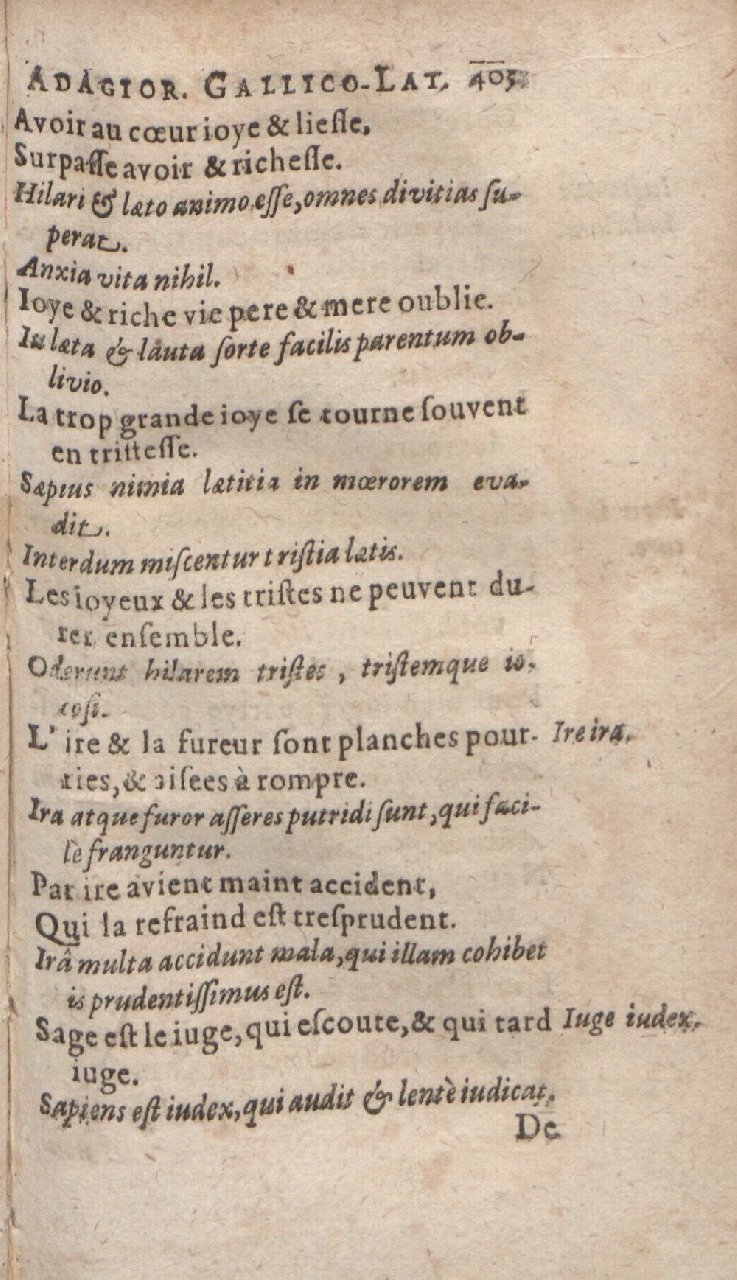 ADAGIOR. GALLICO-LAT. 405
Avoir au cœur ioye & liesse,
Surpasse avoir & richesse.
Hilari & læto animo esse, omnes divitias su-
perat.
Anxia vita nihil.
Ioye & riche vie pere & mere oublie.
In læta & lauta sorte facilis parentum ob-
livio.
La trop grande ioye se tourne souvent
en tristesse.
Sæpius nimia lætitia in mœrorem eva-
dit.
Interdum miscentur tristia lætis.
Les ioyeux & les tristes ne peuvent du-
rer ensemble.
Oderunt hilarem tristes, tristemque io-
cosi.
L' ire & la fureur sont planches pour- Ire ira.
ries, & aisees à rompre.
Ira atque furor asseres putridi sunt, qui faci-
lè franguntur.
Par ire avient maint accident,
Qui la refraind est tresprudent.
Irâ multa accidunt mala, qui illam cohibet
is prudentissimus est.
Sage est le iuge, qui escoute, & qui tard Iuge iudex.
iuge.
Sapiens est iudex, qui audit & lentè iudicat.
De